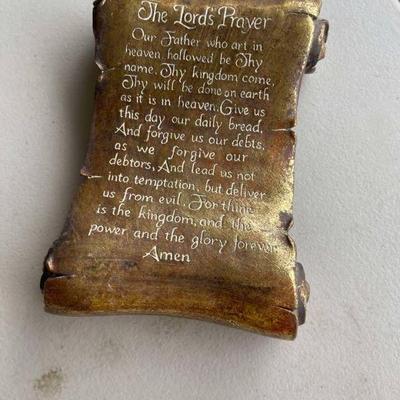 The Lord's Prayer
Our Father who art in
heaven, hollowed be Thy
name. Thy kingdom come,
Thy will be done on earth
as it is in heaven. Give us
this day our daily bread,
And forgive us our debts,
as we forgive our
debtors, And lead us not
into temptation, but deliver
us from evil, For thine
is the kingdom, and the
power, and the glory forever
Amen